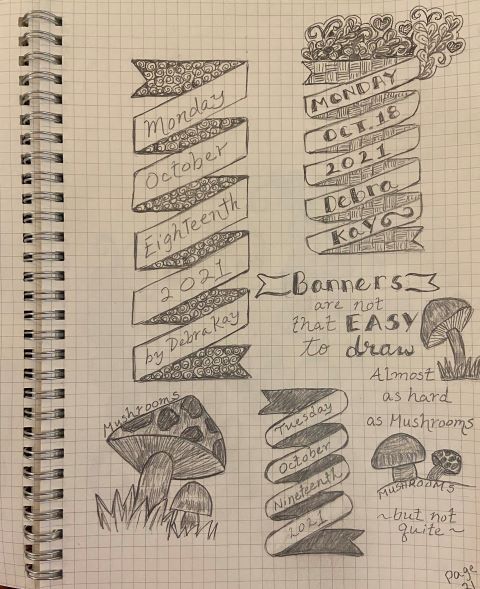 Monday
October
Eighteenth
2021
by DebraKay
MONDAY
OCT. 18
2021
Debra
KAY
Banners
are not
that EASY
to draw
Almost
as hard
as Mushrooms
MUSHROOMS
~but not
quite~
Mushrooms
Tuesday
October
Nineteenth
2021
page